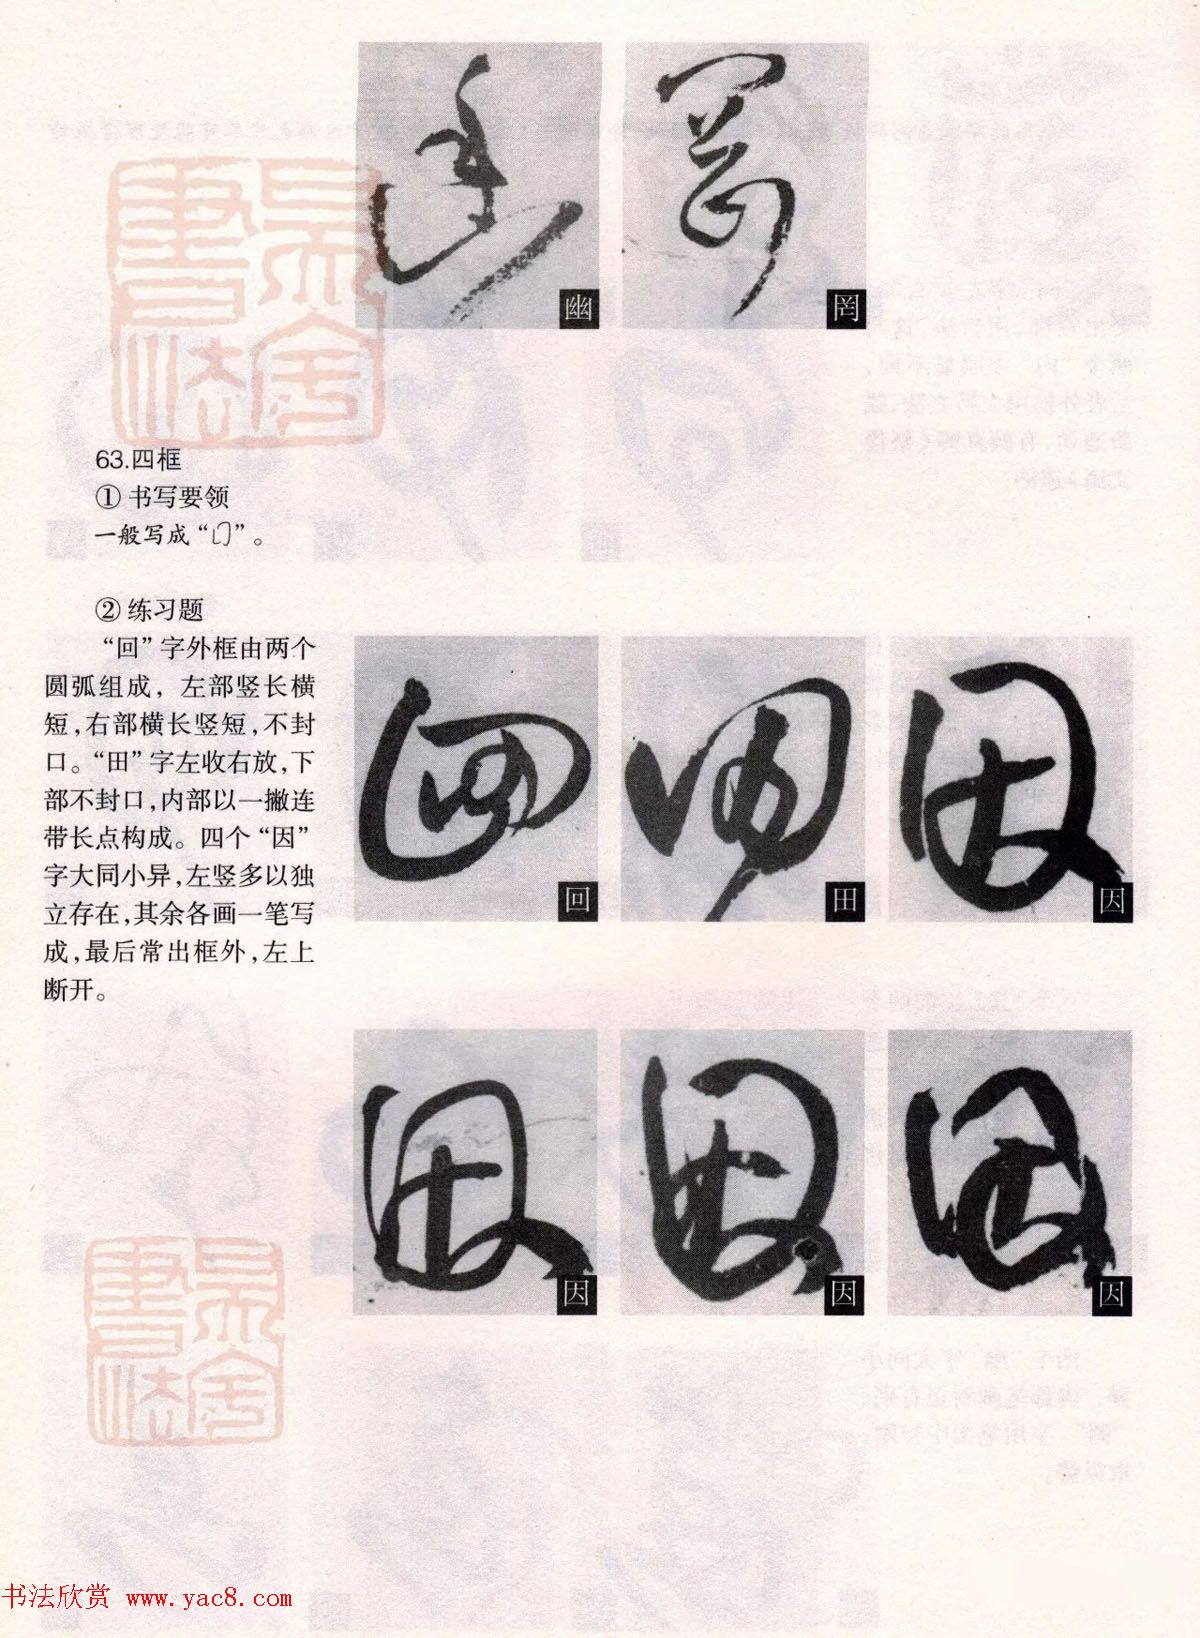 幽
罔
63.四框
① 书写要领
一般写成“”。
② 练习题
“回”字外框由两个
圆弧组成，左部竖长横
短，右部横长竖短，不封
口。“田”字左收右放，下
部不封口，内部以一撇连
带长点构成。四个“因”
字大同小异，左竖多以独
立存在，其余各画一笔写
成，最后常出框外，左上
断开。
回
田
因
因
因
因
书法欣赏 www.yac8.com